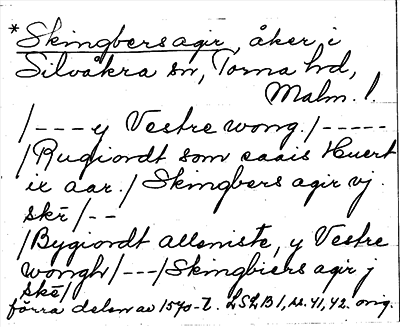 *Skingbersagir, åker i
Silvåkra sn, Torna hd,
Malm. l.
/---y Vestre wong./-----
/Rugiordt som saais Huert
ix aar./Skingbers agir vj
skē/--
/Bygiordt alleniste, y Vestre
wongh/---/Skingbiers agir j
skē/
förra delen av 1540-t. LSLB1, ss. 41, 42. orig.